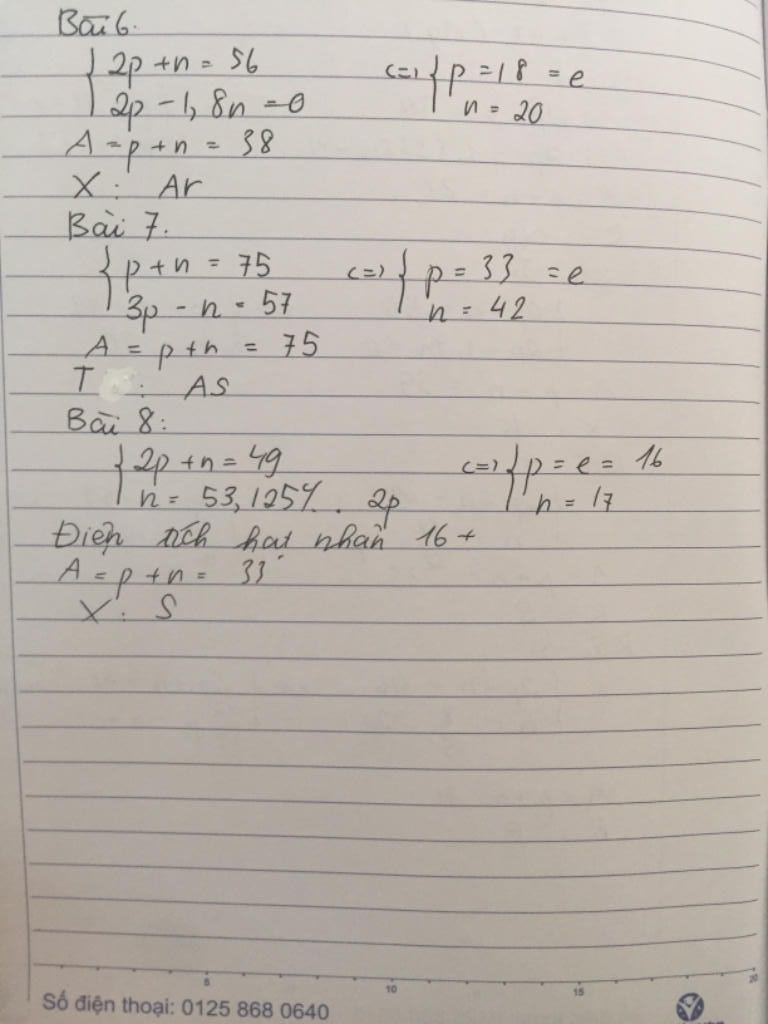 Bài 6.
{ 2p + n = 56 <=> { p = 18 = e
2p - 1,8n = 0 n = 20
A = p + n = 38
X : Ar
Bài 7.
{ p + n = 75 <=> { p = 33 = e
3p - n = 57 n = 42
A = p + n = 75
T : AS
Bài 8:
{ 2p + n = 49 <=> { p = e = 16
n = 53,125% . 2p n = 17
Điện tích hạt nhân 16+
A = p + n = 33
X : S
5 10 15 20
Số điện thoại: 0125 868 0640